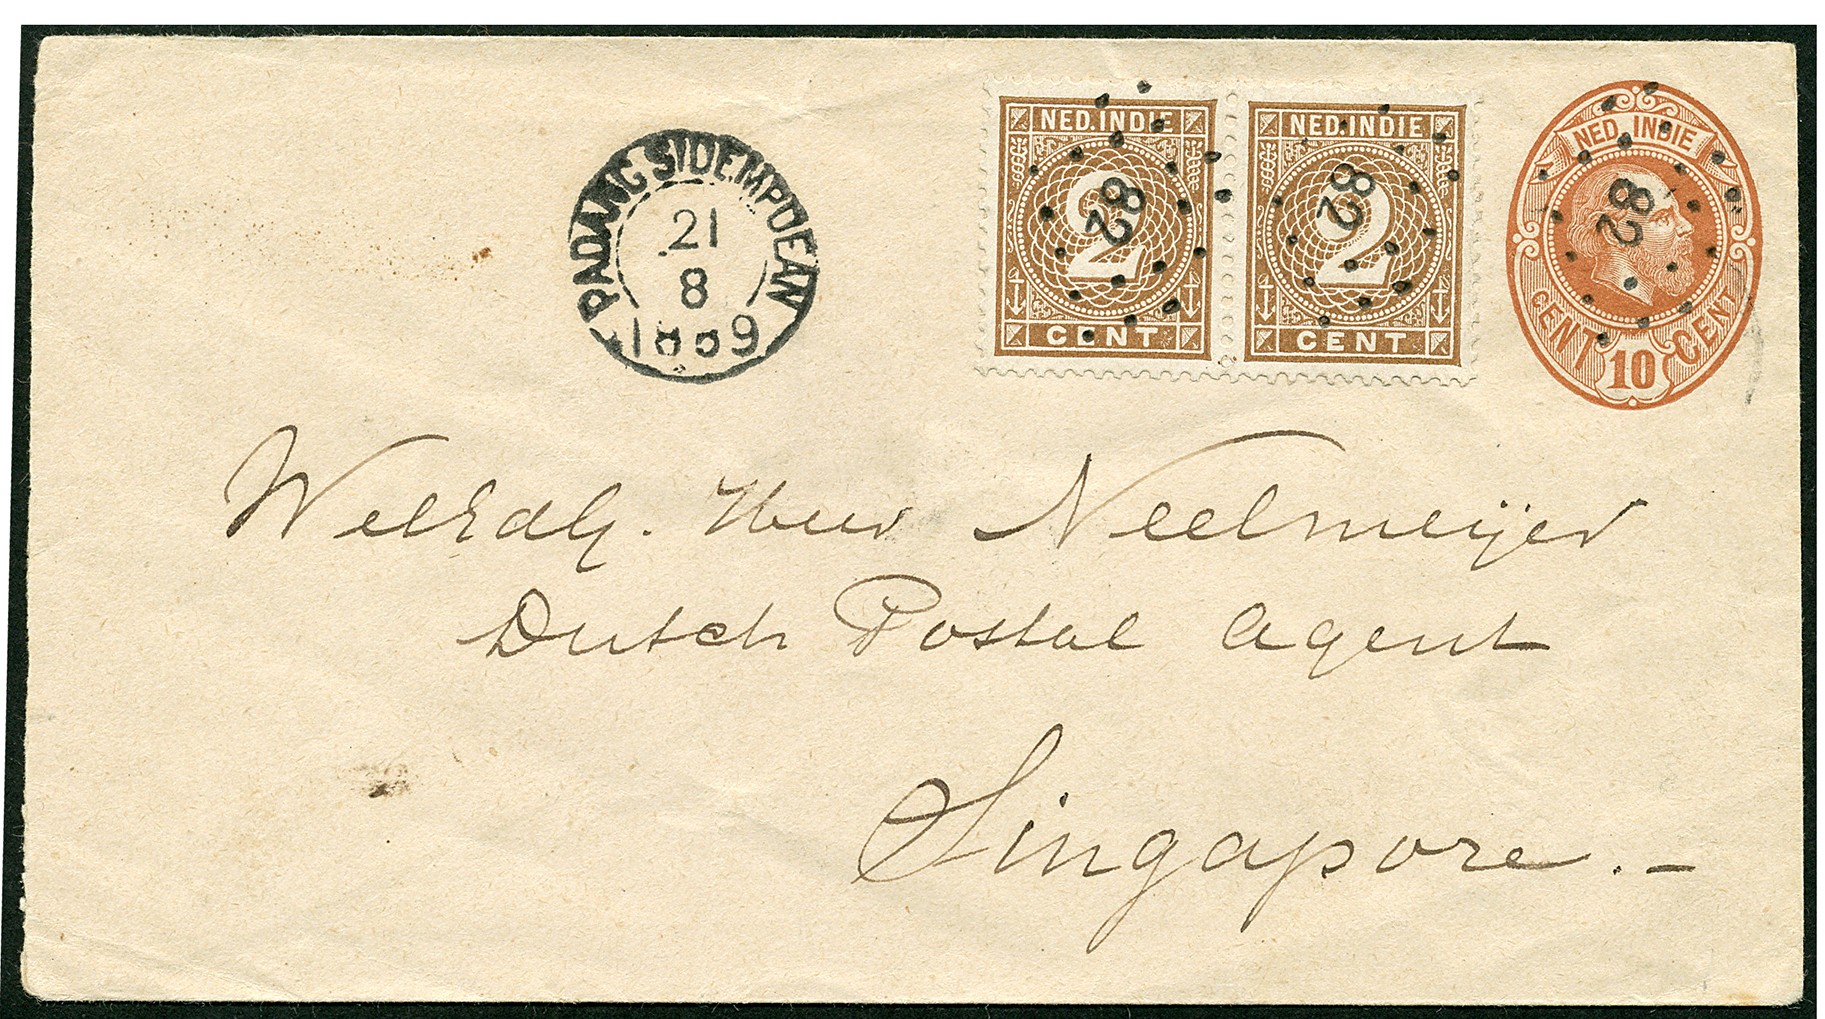 PADANG SIDEMPOEAN
21
8
1889
NED. INDIE
2
CENT
82
NED. INDIE
2
CENT
82
NED. INDIE
CENT 10 CENT
82
WelEdG. Heer Neelmeijer
Dutch Postal Agent
Singapore.-